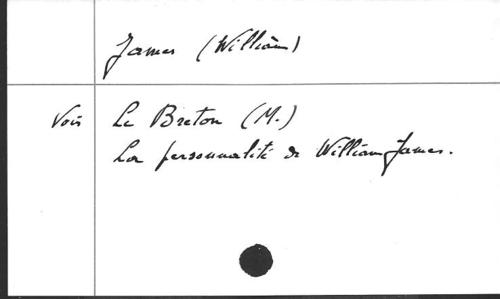 James (William)
Voir Le Breton (M.)
La personnalité de William James.